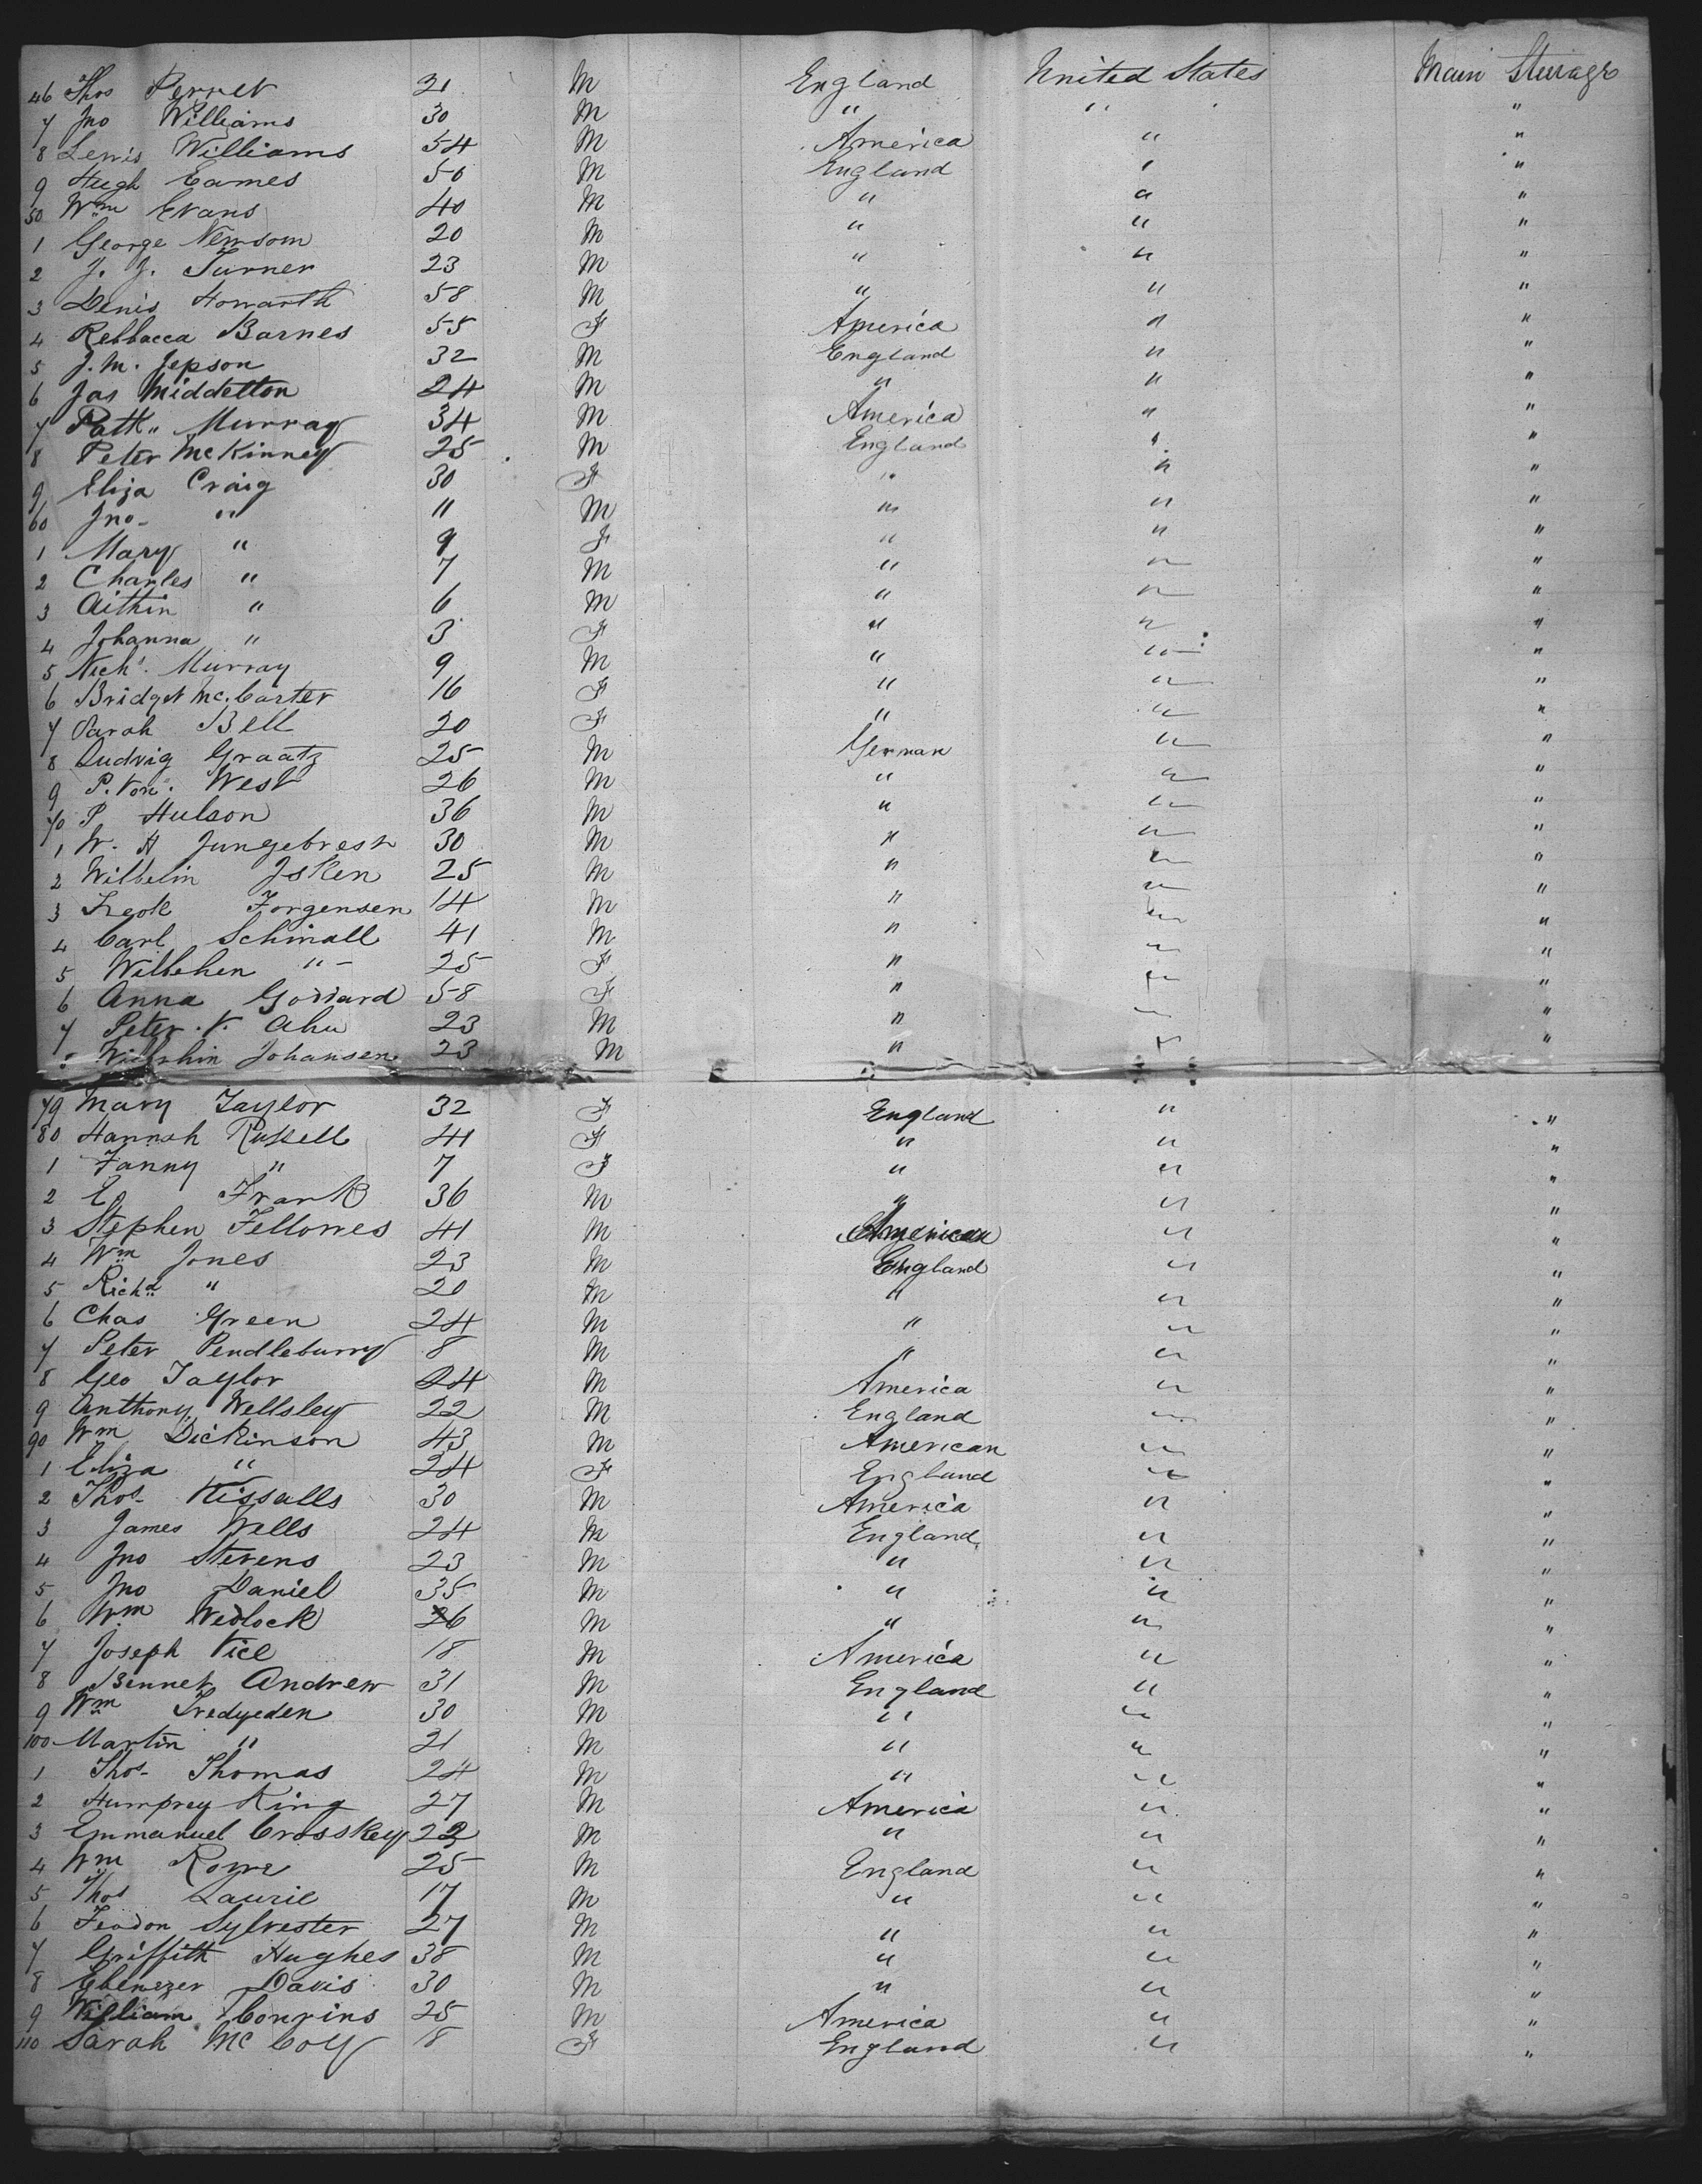 46 Thos Perret 21 M England United States Main Steerage
7 Jno Williams 30 M " " "
8 Lewis Williams 54 M America " "
9 Hugh Eames 50 M England " "
50 Wm Evans 40 M " " "
1 George Newsom 20 M " " "
2 J. J. Turner 23 M " " "
3 Denis Howarth 58 M " " "
4 Rebbacca Barnes 55 F America " "
5 J. M. Jepson 32 M England " "
6 Jas Middelton 24 M " " "
7 Patk Murray 34 M America " "
8 Peter McKinney 25 M England " "
9 Eliza Craig 30 F " " "
60 Jno " 11 M " " "
1 Mary " 9 F " " "
2 Charles " 7 M " " "
3 Aitkin " 6 M " " "
4 Johanna " 3 F " " "
5 Nichs. Murray 9 M " " "
6 Bridget Mc.Carter 16 F " " "
7 Sarah Bell 20 F " " "
8 Ludvig Graatz 25 M German " "
9 P. Von. West 26 M " " "
70 P Hulson 36 M " " "
1 W. H Jungebrest 30 M " " "
2 Wilhelm Isken 25 M " " "
3 Fredk Jorgensen 14 M " " "
4 Carl Schmall 41 M " " "
5 Wilhehen " 25 F " " "
6 Anna Goddard 58 F " " "
7 Peter. V. Ahu 23 M " " "
Johansen 23 M " " "
79 Mary Taylor 32 F England " "
80 Hannah Russell 41 F " " "
1 Fanny " 7 F " " "
2 Ed Frank 36 M " " "
3 Stephen Fellowes 41 M American " "
4 Wm Jones 23 M England " "
5 Richd " 20 M " " "
6 Chas Green 24 M " " "
7 Peter Pendlebury 8 M " " "
8 Geo Taylor 24 M America " "
9 Anthony Wellsley 22 M England " "
90 Wm Dickinson 43 M American " "
1 Eliza " 24 F England " "
2 Thos Kissalls 30 M America " "
3 James Wells 24 M England " "
4 Jno Stevens 23 M " " "
5 Jno Daniel 35 M " " "
6 Wm Wedlock 26 M " " "
7 Joseph Vice 18 M America " "
8 Bennet Andrew 31 M England " "
9 Wm Tredgeden 30 M " " "
100 Martin " 21 M " " "
1 Thos Thomas 24 M " " "
2 Humprey King 27 M America " "
3 Emmanuel Crosskey 22 M " " "
4 Wm Rowe 25 M England " "
5 Thos Laurie 17 M " " "
6 Feodon Sylvester 27 M " " "
7 Griffith Hughes 38 M " " "
8 Ebenezer Davis 30 M " " "
9 William 25 M America " "
110 Sarah McCoy 18 F England " "